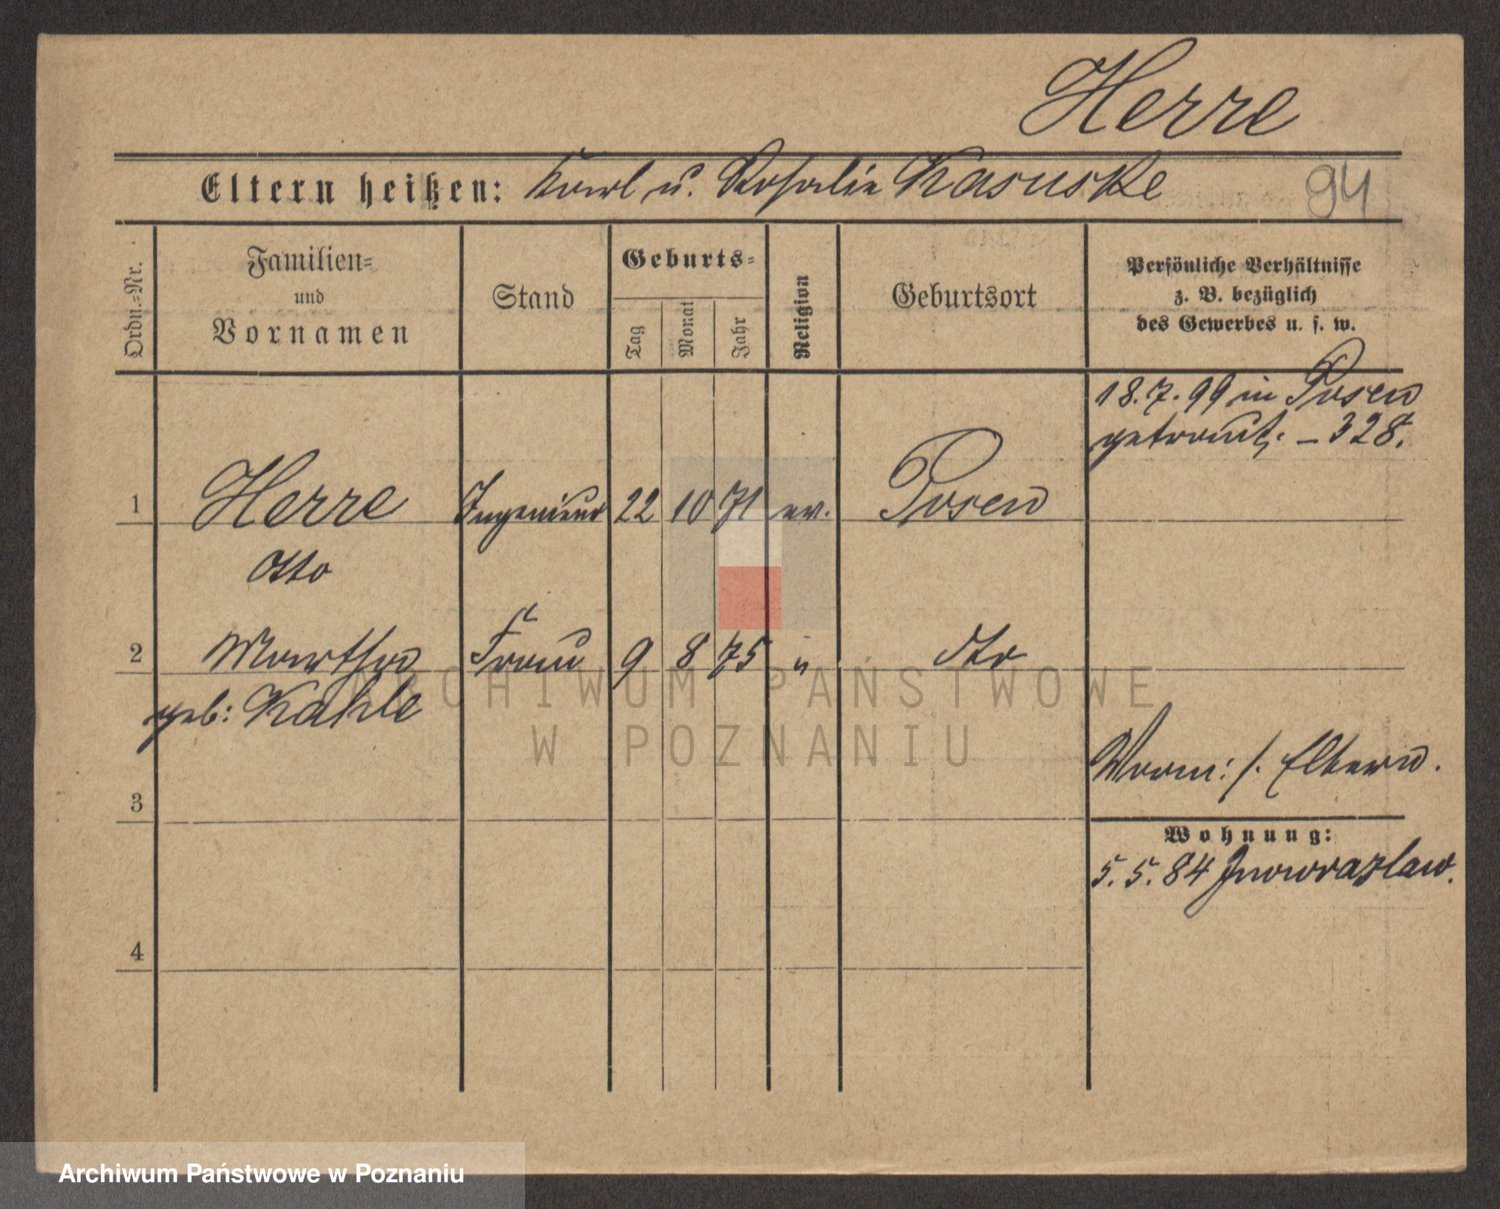 Herre
Eltern heißen: Karl u. Rosalie Kasuske
94
Ordn.-Nr.
Familien-
und
Vornamen
Stand
Geburts-
Tag
Monat
Jahr
Religion
Geburtsort
Persönliche Verhältnisse
z. B. bezüglich
des Gewerbes u. s. w.
18.7.99 in Posen
getraut. – 328.
1 Herre Ingenieur 22 10 71 ev. Posen
Otto
2 Martha Frau 9 8 75 " dto
geb: Kahle
ARCHIWUM PAŃSTWOWE
W POZNANIU
Eltern.
3
Wohnung:
5.5.84 Inowrazlaw.
4
Archiwum Państwowe w Poznaniu